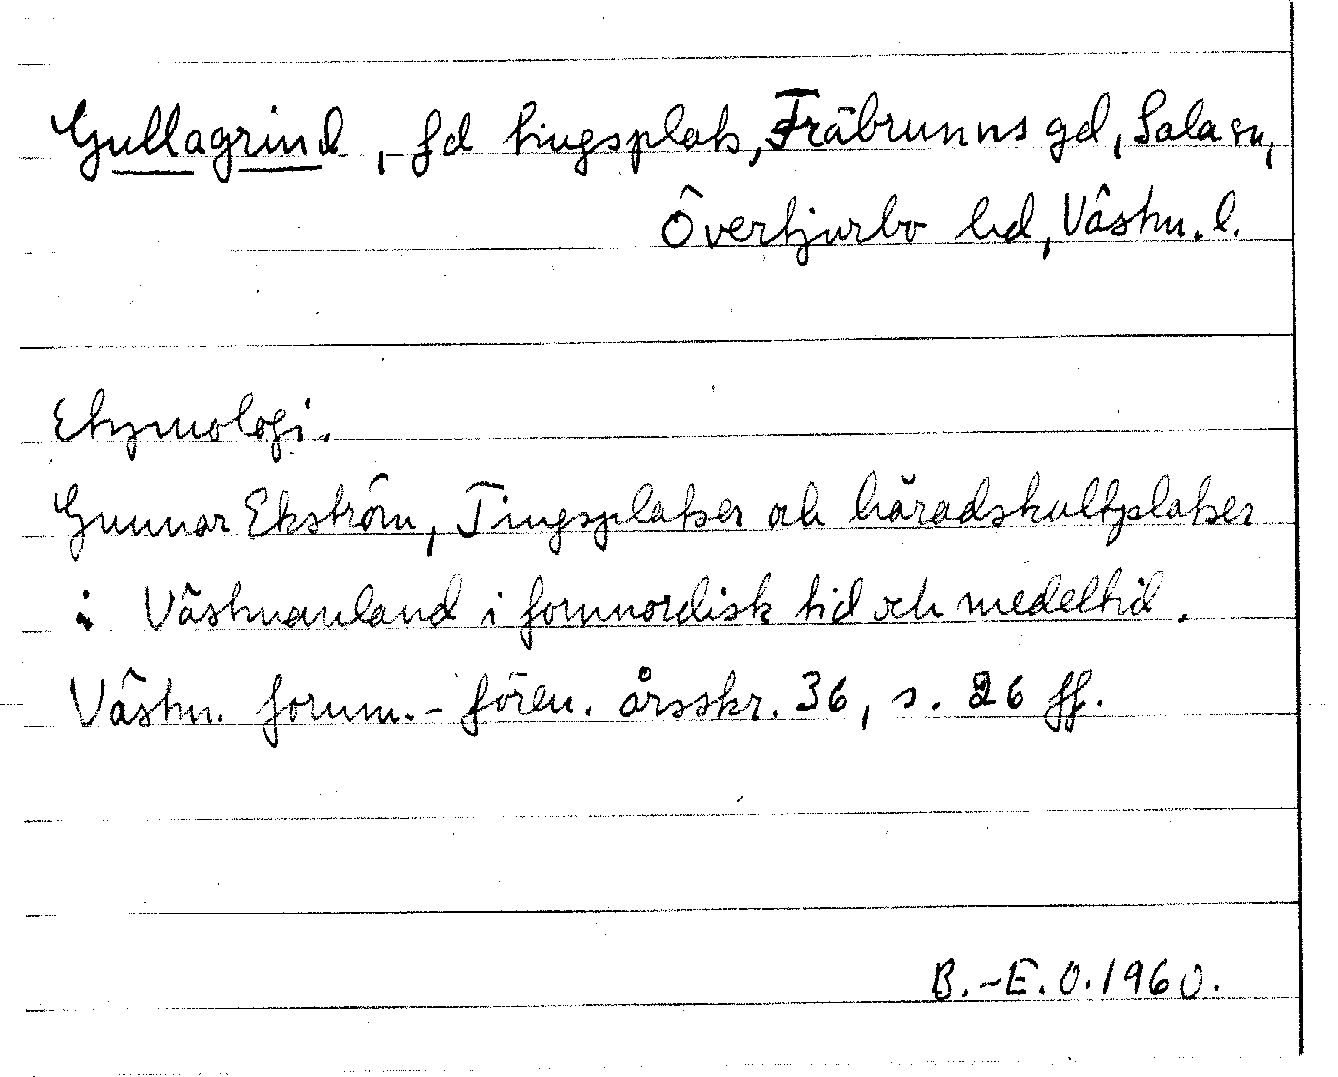 Gullagrind, fd tingsplats, Träbrunns gd, Sala sn,
Övertjurbo hd, Västm. l.
Etymologi.
Gunnar Ekström, Tingsplatser och häradskultplatser
i Västmanland i fornnordisk tid och medeltid.
Västm. fornm.-fören. årsskr. 36, s. 26 ff.
B.-E.O. 1960.